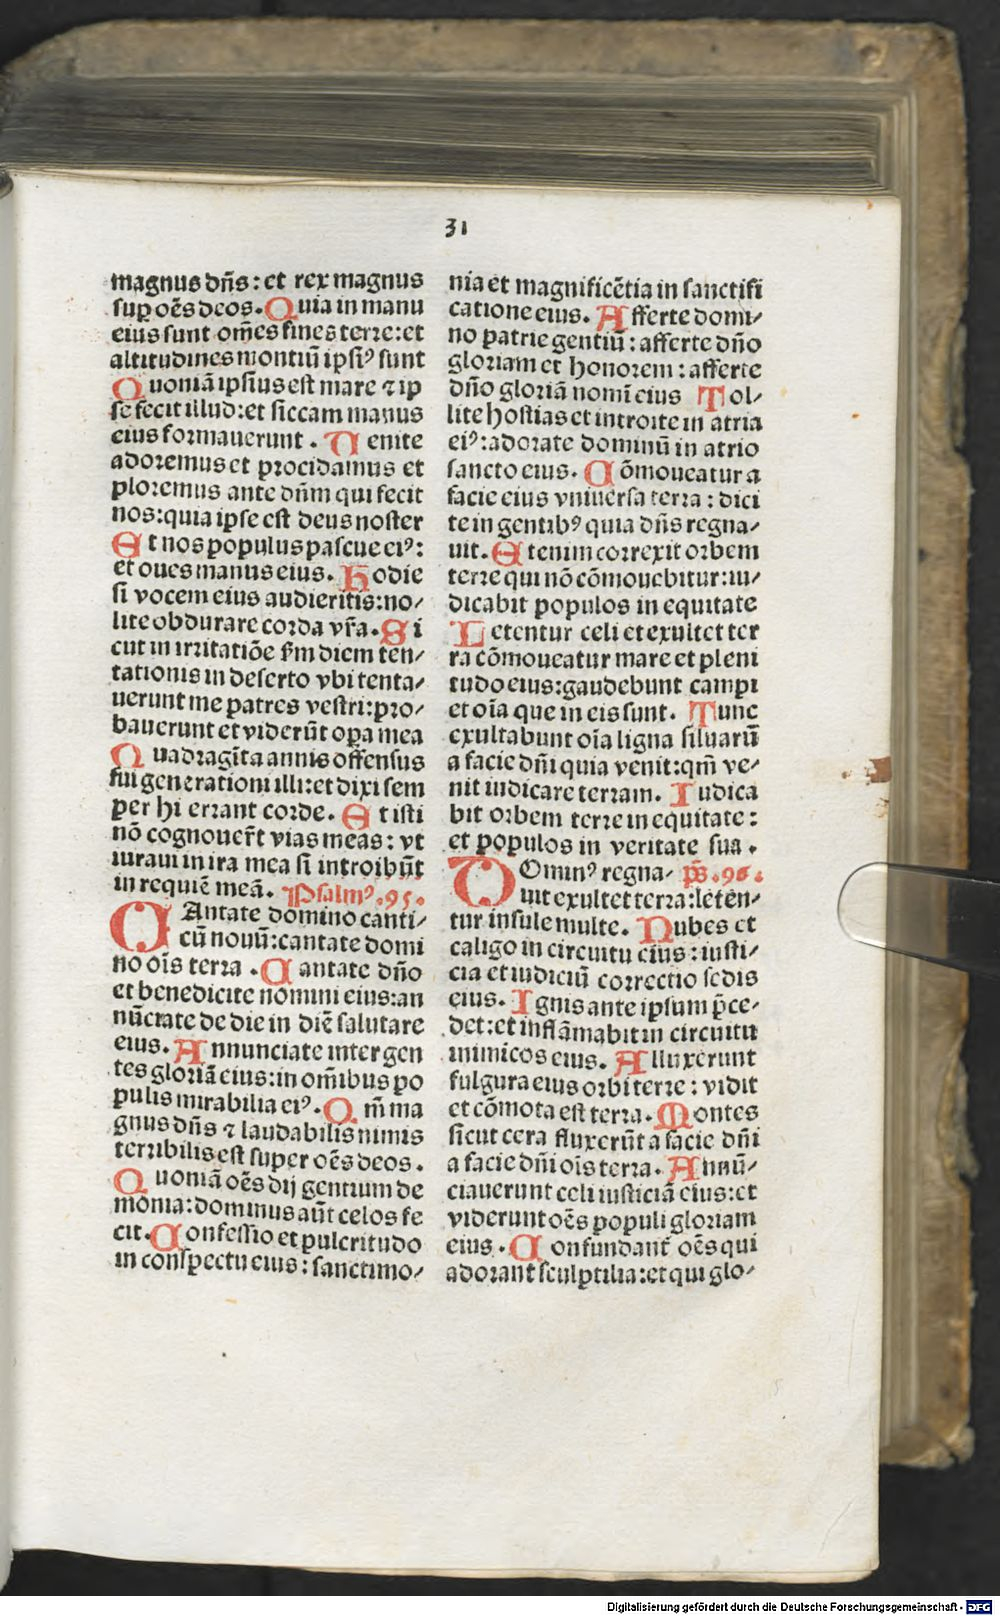 31
magnus dn̄s : et rex magnus
suꝑ oēs deos. Quia in manu
eius sunt om̄es fines terre: et
altitudines montiū ipsiꝰ sunt
Quoniā ipsius est mare ⁊ ip
se fecit illud: et siccam manus
eius formauerunt . Uenite
adoremus et procidamus et
ploremus ante dn̄m qui fecit
nos: quia ipse est deus noster
Et nos populus pascue eiꝰ:
et oues manus eius. Hodie
si vocem eius audieritis: no⸗
lite obdurare corda vr̄a. Si
cut in irritatiōe ẜm diem ten⸗
tationis in deserto vbi tenta⸗
uerunt me patres vestri: pro⸗
bauerunt et viderūt oꝑa mea
Quadragīta annis offensus
fui generationi illi: et dixi sem
per hi errant corde. Et isti
nō cognouer̄t vias meas: vt
iuraui in ira mea si introibūt
in requiē meā. Psalmꝰ .95.
CAntate domino canti⸗
cū nouū: cantate domi
no oīs terra . Cantate dn̄o
et benedicite nomini eius: an
nūciate de die in diē salutare
eius. Annunciate inter gen
tes gloriā eius: in om̄ibus po
pulis mirabilia eiꝰ. Qm̄ ma
gnus dn̄s ⁊ laudabilis nimis
terribilis est super oēs deos.
Quoniā oēs dij gentium de
monia: dominus aūt celos fe
cit. Confessio et pulcritudo
in conspectu eius : sanctimo⸗
nia et magnificētia in sanctifi
catione eius. Afferte domi⸗
no patrie gentiū : afferte dn̄o
gloriam et honorem : afferte
dn̄o gloriā nomī eius Tol⸗
lite hostias et introite in atria
eiꝰ: adorate dominū in atrio
sancto eius. Cōmoueatur a
facie eius vniuersa terra : dici
te in gentibꝰ quia dn̄s regna⸗
uit. Etenim correxit orbem
terre qui nō cōmouebitur: iu⸗
dicabit populos in equitate
Letentur celi et exultet ter
ra cōmoueatur mare et pleni
tudo eius: gaudebunt campi
et oīa que in eis sunt. Tunc
exultabunt oīa ligna siluarū
a facie dn̄i quia venit: qm̄ ve⸗
nit iudicare terram. Iudica
bit orbem terre in equitate :
et populos in veritate sua .
DOminꝰ regna⸗ ps̄ .96.
uit exultet terra: leten⸗
tur insule multe. Nubes et
caligo in circuitu eius : iusti⸗
cia et iudiciū correctio sedis
eius. Ignis ante ipsum p̄ce⸗
det: et inflāmabit in circuitu
inimicos eius. Alluxerunt
fulgura eius orbi terre : vidit
et cōmota est terra. Montes
sicut cera fluxerūt a facie dn̄i
a facie dn̄i oīs terra. Annū⸗
ciauerunt celi iusticiā eius: et
viderunt oēs populi gloriam
eius . Confundant̄ oēs qui
adorant sculptilia: et qui glo⸗
Digitalisierung gefördert durch die Deutsche Forschungsgemeinschaft - DFG